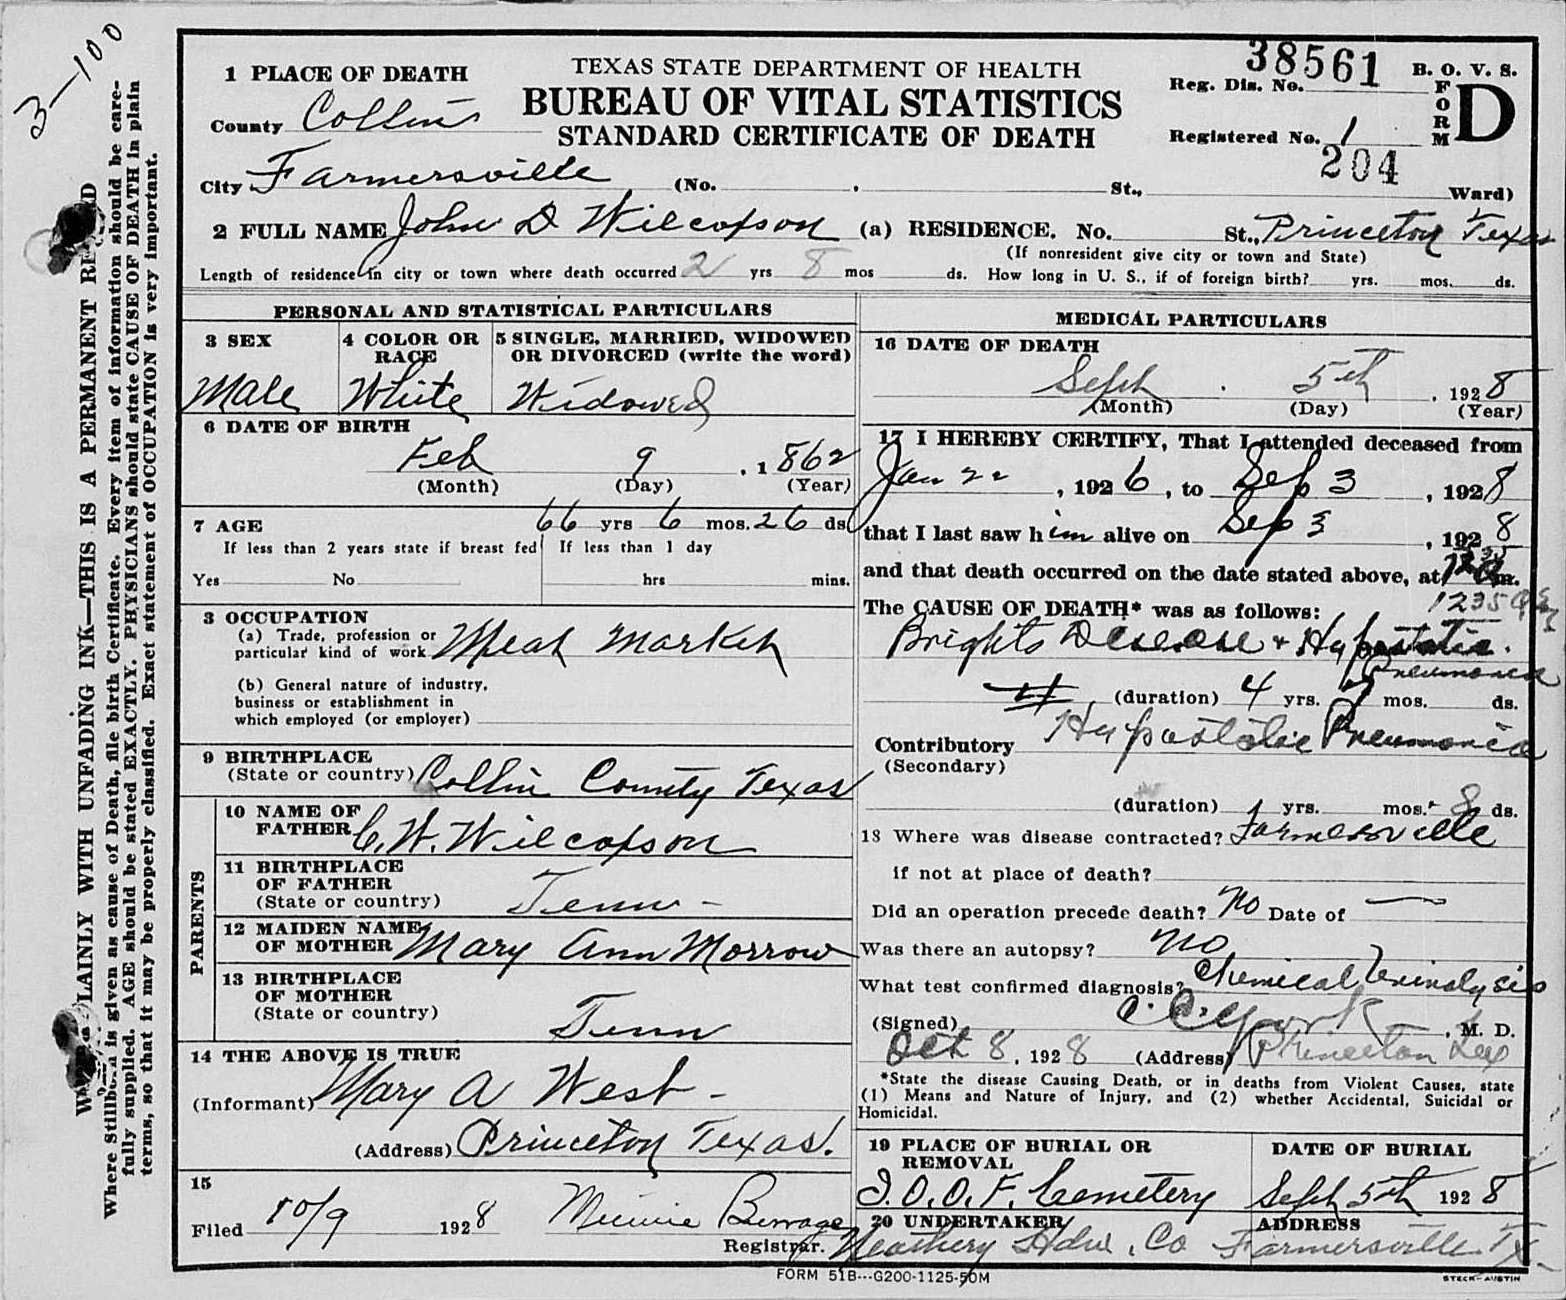 3-100
38561
1 PLACE OF DEATH
TEXAS STATE DEPARTMENT OF HEALTH
BUREAU OF VITAL STATISTICS
STANDARD CERTIFICATE OF DEATH
Reg. Dis. No.
B. O. V. S.
FORM D
Registered No. 1
204
County Collin
City Farmersville (No. St., Ward)
2 FULL NAME John D Wilcoxson (a) RESIDENCE. No. St., Princeton Texas
(If nonresident give city or town and State)
Length of residence in city or town where death occurred 2 yrs 8 mos ds. How long in U. S., if of foreign birth? yrs. mos. ds.
PERSONAL AND STATISTICAL PARTICULARS
3 SEX
Male
4 COLOR OR RACE
White
5 SINGLE, MARRIED, WIDOWED
OR DIVORCED (write the word)
Widowed
6 DATE OF BIRTH
Feb 9 . 1 862
(Month) (Day) (Year)
7 AGE 66 yrs 6 mos. 26 ds
If less than 2 years state if breast fed If less than 1 day
Yes No hrs mins.
8 OCCUPATION
(a) Trade, profession or
particular kind of work Meat Market
(b) General nature of industry,
business or establishment in
which employed (or employer)
9 BIRTHPLACE
(State or country) Collin County Texas
PARENTS
10 NAME OF
FATHER C. W. Wilcoxson
11 BIRTHPLACE
OF FATHER
(State or country) Tenn -
12 MAIDEN NAME
OF MOTHER Mary Ann Morrow
13 BIRTHPLACE
OF MOTHER
(State or country) Tenn
14 THE ABOVE IS TRUE
(Informant) Mary A West -
(Address) Princeton Texas.
15
Filed 10/9 1928 Minnie Burrage
Registrar.
MEDICAL PARTICULARS
16 DATE OF DEATH
Sept . 5th . 1928
(Month) (Day) (Year)
17 I HEREBY CERTIFY, That I attended deceased from
Jan 22 , 1926, to Sep 3 , 1928
that I last saw him alive on Sep 3 , 1928
and that death occurred on the date stated above, at m.
1235
The CAUSE OF DEATH* was as follows:
Brights Desease + Hypostatic
Pneumonia
(duration) 4 yrs. mos. ds.
Contributory Hypostatic Pneumonia
(Secondary)
(duration) yrs. mos. 8 ds.
18 Where was disease contracted? Farmersville
if not at place of death?
Did an operation precede death? No Date of —
Was there an autopsy? No
What test confirmed diagnosis? Chemical Urinalysis
(Signed) C. C. York , M. D.
Oct 8, 1928 (Address) Princeton Tex
*State the disease Causing Death, or in deaths from Violent Causes, state
(1) Means and Nature of Injury, and (2) whether Accidental, Suicidal or
Homicidal.
19 PLACE OF BURIAL OR
REMOVAL
I.O.O.F. Cemetery
DATE OF BURIAL
Sept 5th 1928
20 UNDERTAKER
Hdw. Co
ADDRESS
Farmersville Tx
FORM 51B---G200-1125-50M
STECK-AUSTIN
PLAINLY WITH UNFADING INK—THIS IS A PERMANENT RECORD
Where Stillborn is given as cause of Death, file birth Certificate. Every item of information should be care-
fully supplied. AGE should be stated EXACTLY. PHYSICIANS should state CAUSE OF DEATH in plain
terms, so that it may be properly classified. Exact statement of OCCUPATION is very important.